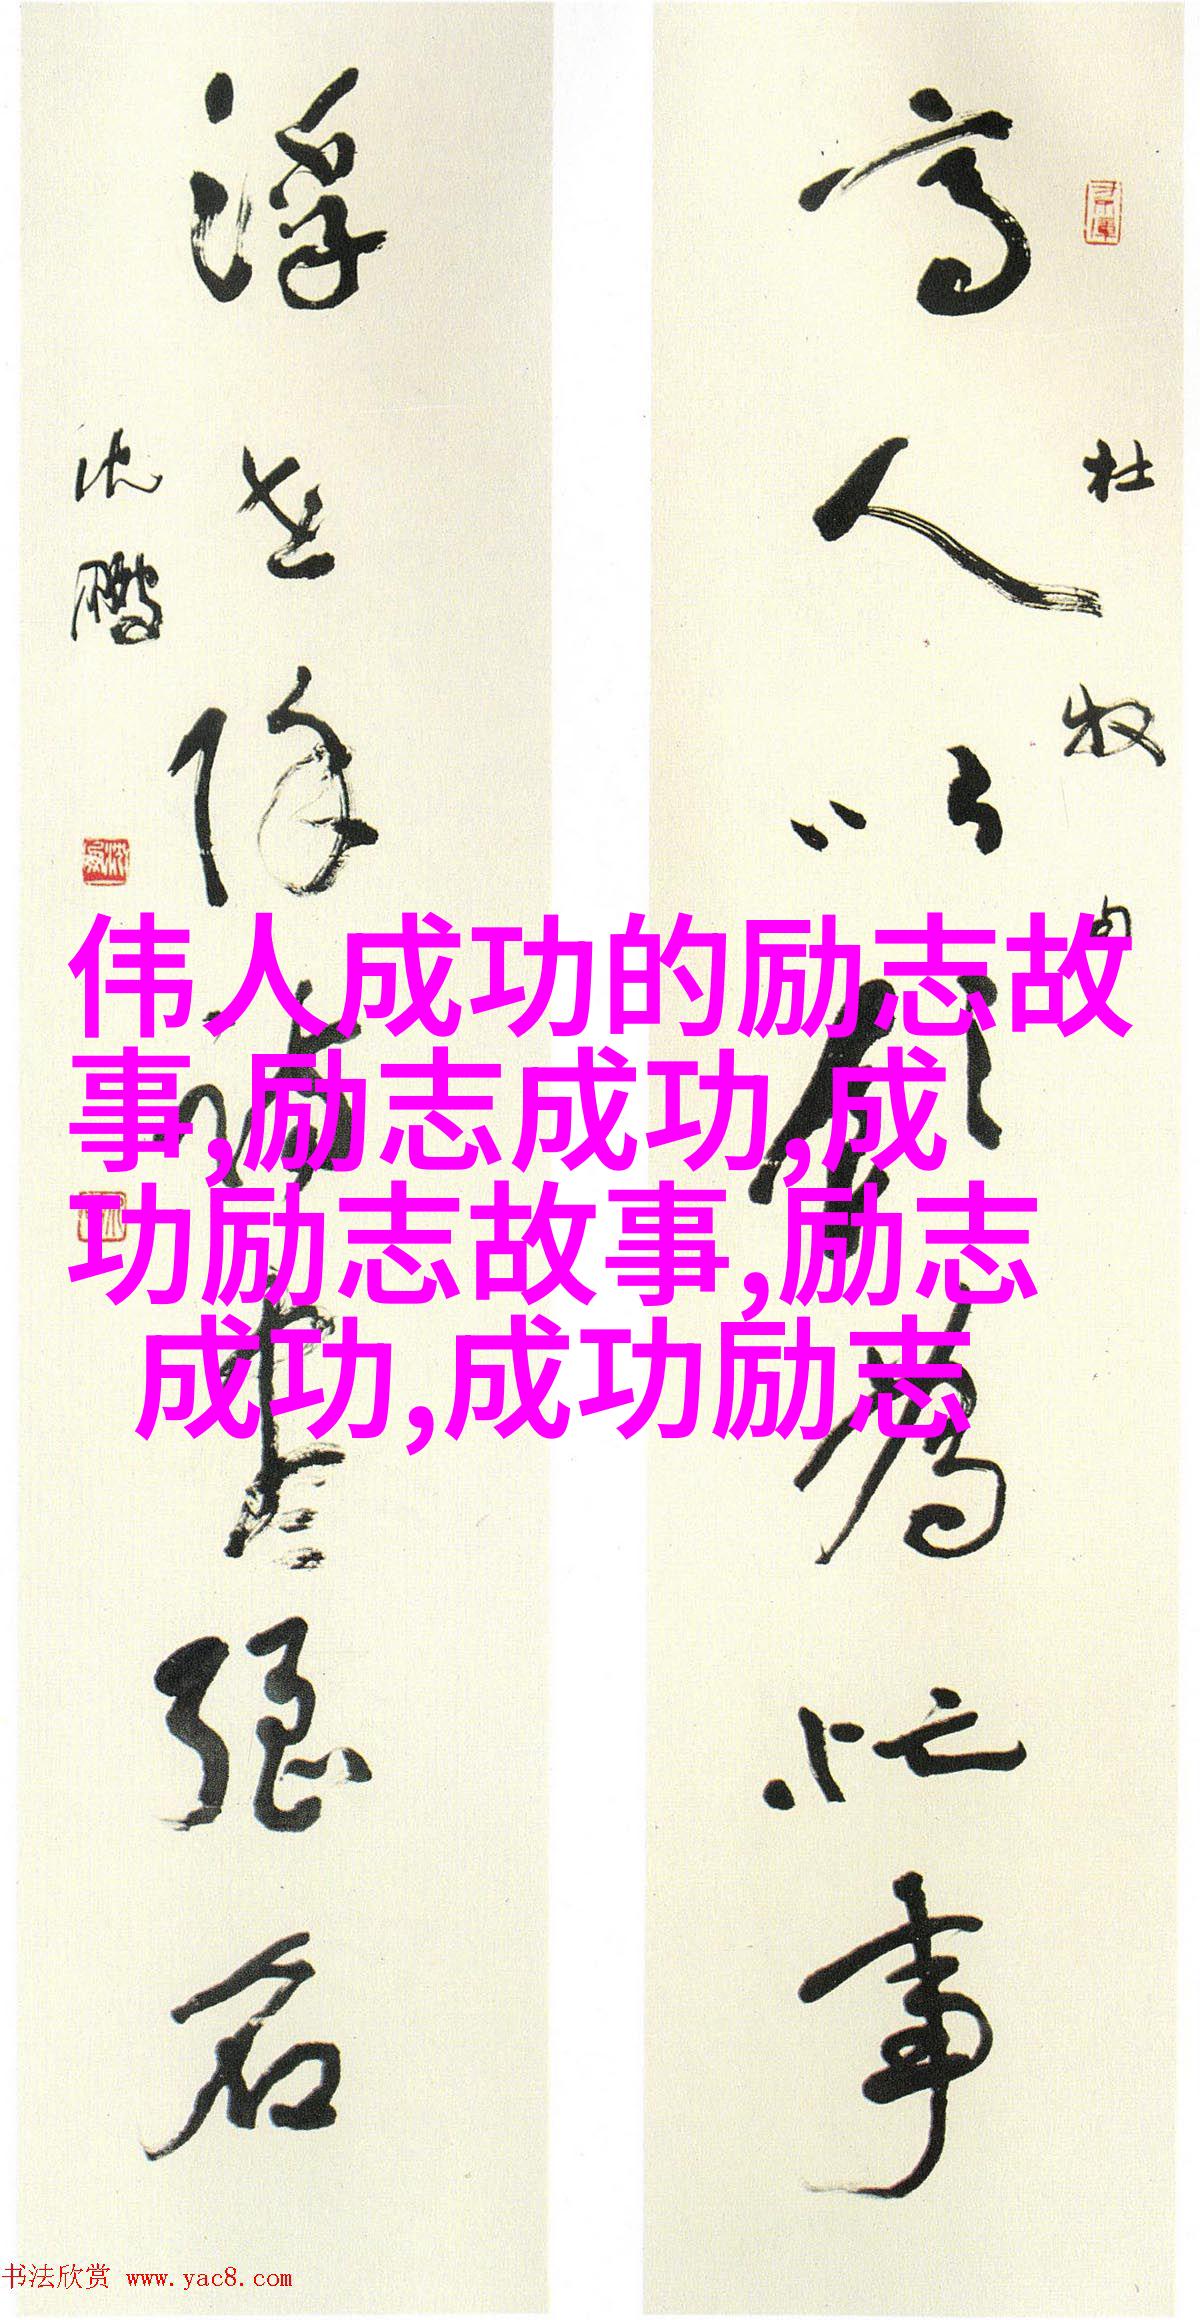 杜牧句
高人以飲為忙事
浮世除詩盡強名
沈鵬
伟人成功的励志故
事,励志成功,成
功励志故事,励志
成功,成功励志
书法欣赏 www.yac8.com